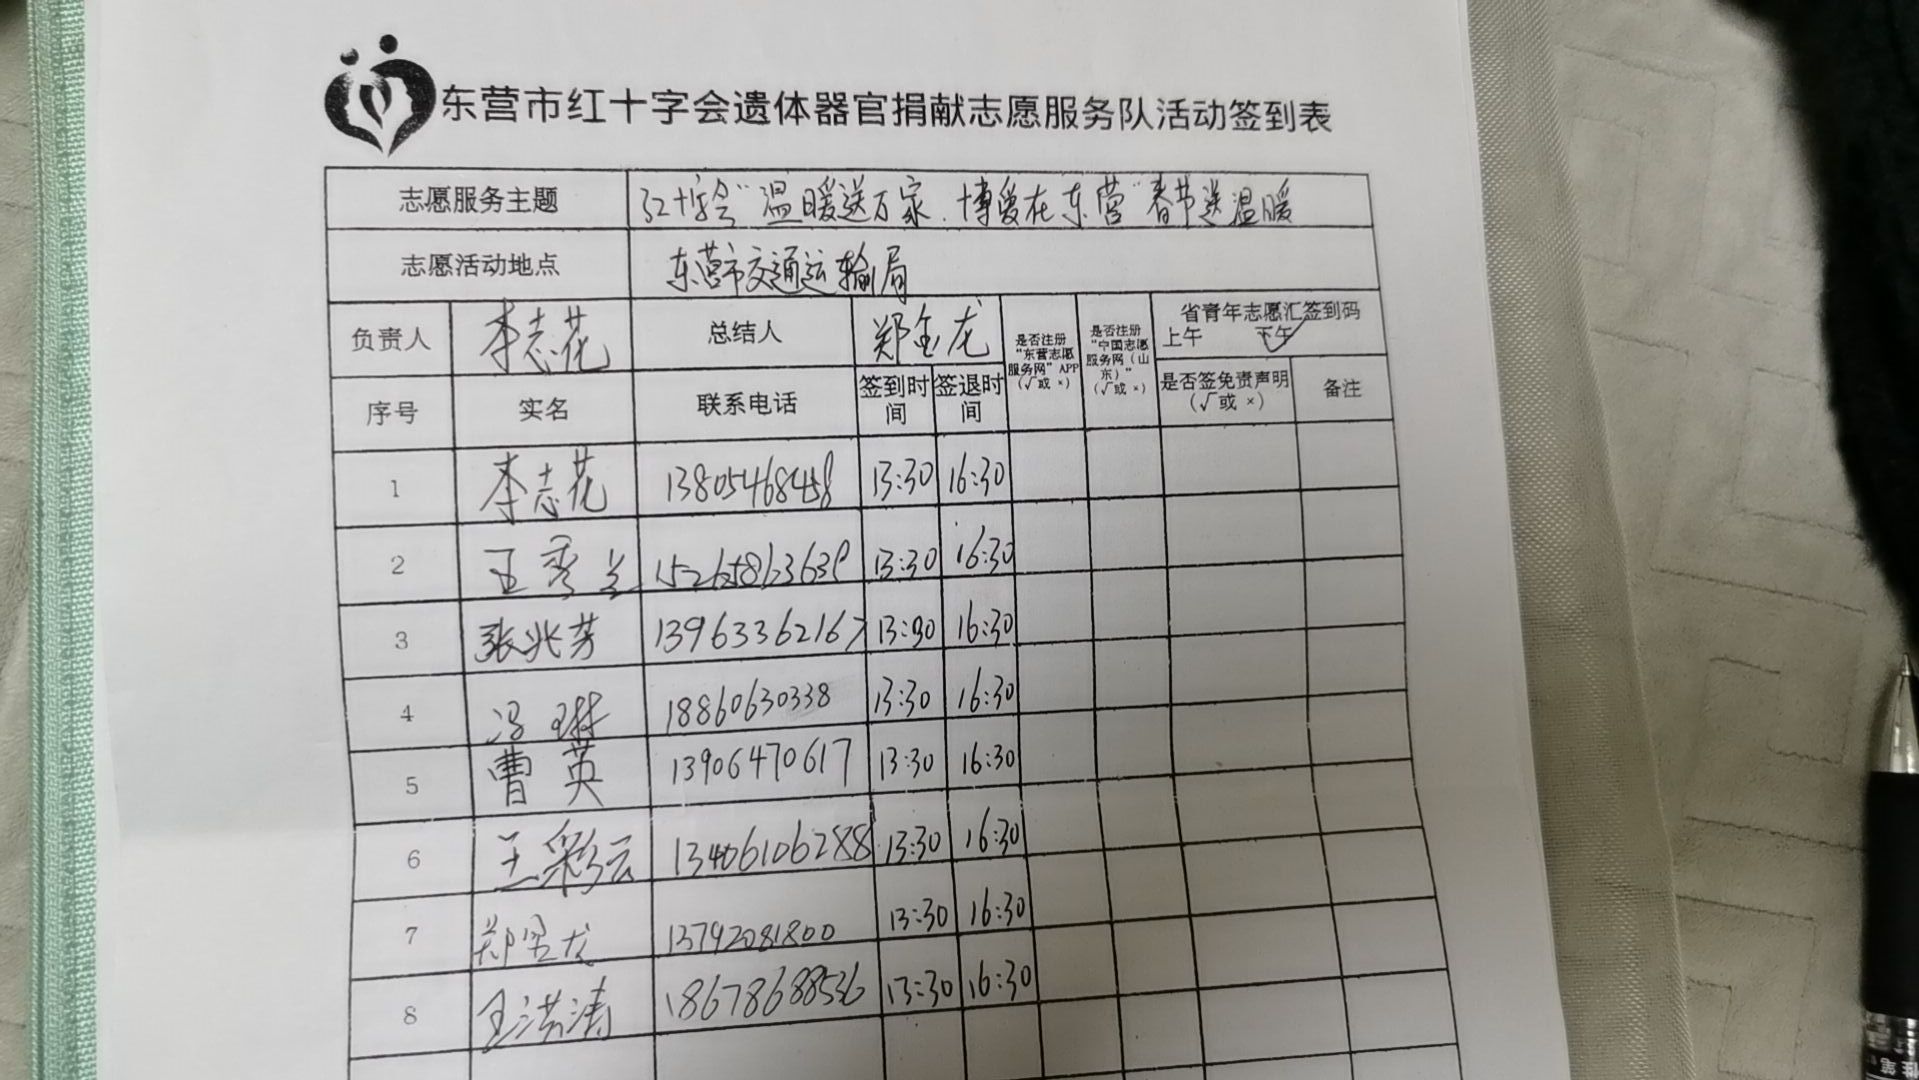 东营市红十字会遗体器官捐献志愿服务队活动签到表
志愿服务主题 红十字会"温暖送万家.博爱在东营"春节送温暖
志愿活动地点 东营市交通运输局
负责人 李志花 总结人 郑金龙 是否注册"东营志愿服务网"APP(√或×) 是否注册"中国志愿服务网(山东)"(√或×) 省青年志愿汇签到码 上午 下午✓
序号 实名 联系电话 签到时间 签退时间 是否签免责声明(√或×) 备注
1 李志花 13805468458 13:30 16:30
2 王秀兰 13:30 16:30
3 张兆芳 13963362167 13:30 16:30
4 冯琳 18860630338 13:30 16:30
5 曹英 13906470617 13:30 16:30
6 王彩云 13406106288 13:30 16:30
7 郑金龙 13792081800 13:30 16:30
8 王洪涛 18678688536 13:30 16:30